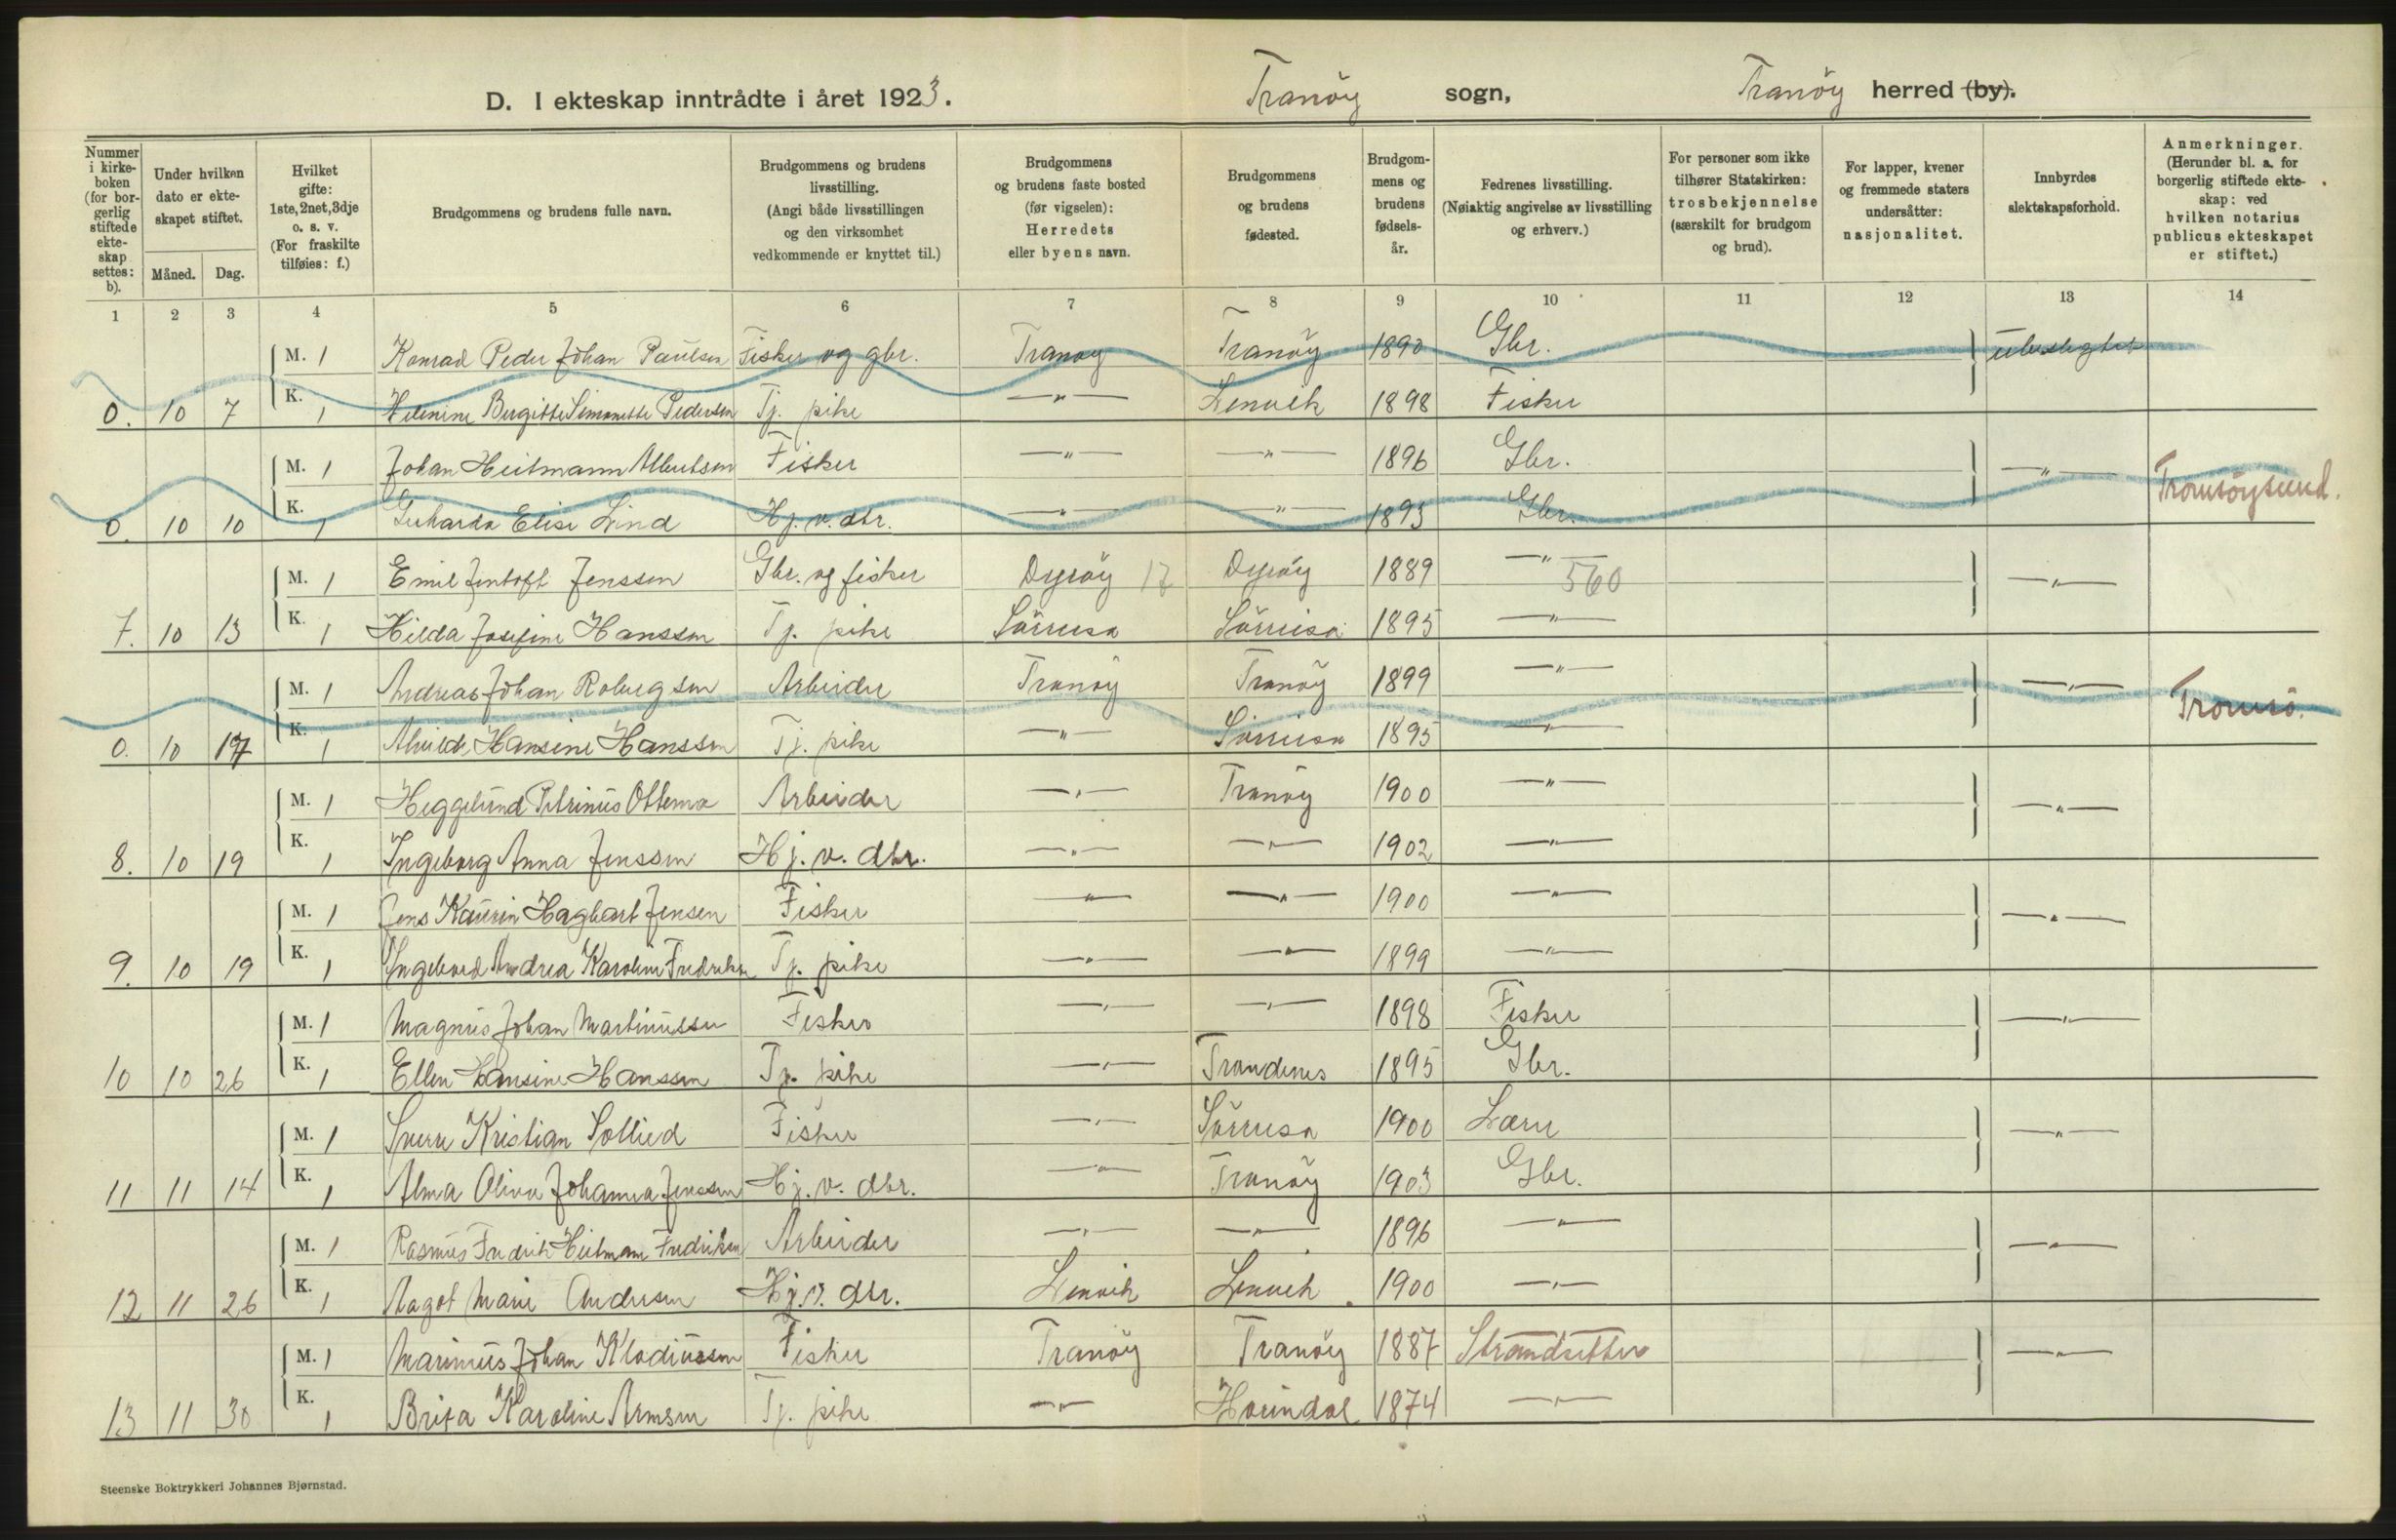 D. I ekteskap inntrådte i året 1923. Tranöy sogn, Tranöy herred (by).
Nummer i kirke-boken (for bor-gerlig stiftede ekte-skap settes: b).
Under hvilken dato er ekte-skapet stiftet.
Måned. Dag.
Hvilket gifte: 1ste, 2net, 3dje o. s. v. (For fraskilte tilføies: f.)
Brudgommens og brudens fulle navn.
Brudgommens og brudens livsstilling. (Angi både livsstillingen og den virksomhet vedkommende er knyttet til.)
Brudgommens og brudens faste bosted (før vigselen): Herredets eller byens navn.
Brudgommens og brudens fødested.
Brudgom-mens og brudens fødsels-år.
Fedrenes livsstilling. (Nøiaktig angivelse av livsstilling og erhverv.)
For personer som ikke tilhører Statskirken: trosbekjennelse (særskilt for brudgom og brud).
For lapper, kvener og fremmede staters undersåtter: nasjonalitet.
Innbyrdes slektskapsforhold.
Anmerkninger. (Herunder bl. a. for borgerlig stiftede ekte-skap: ved hvilken notarius publicus ekteskapet er stiftet.)
1 2 3 4 5 6 7 8 9 10 11 12 13 14
M. 1 Konrad Peder Johan Paulsen Fisker og gbr. Tranöy Tranöy 1890 Gbr. ubeslegtet
0. 10 7 K. 1 Helenine Bergitte Simonette Pedersen Tj. pike —"— Lenvik 1898 Fisker
M. 1 Johan Heitmann Albertsen Fisker —"— —"— 1896 Gbr. —"— Tromsöysund.
0. 10 10 K. 1 Gerharda Elise Lind Hj. v. dtr. —"— —"— 1893 Gbr.
M. 1 Emil Jentoft Jenssen Gbr. og fisker Dyröy 17 Dyröy 1889 —"— 560 —"—
7. 10 13 K. 1 Hilda Josefine Hanssen Tj. pike Sörreisa Sörreisa 1895 —"—
M. 1 Andreas Johan Robergsen Arbeider Tranöy Tranöy 1899 —"— —"— Tromsö.
0. 10 17 K. 1 Alvilde Hansine Hanssen Tj. pike —"— Sörreisa 1895 —"—
M. 1 Heggelund Petrinus Ottema Arbeider —"— Tranöy 1900 —"— —"—
8. 10 19 K. 1 Ingeborg Anna Jenssen Hj. v. dtr. —"— —"— 1902 —"—
M. 1 Jens Kaurin Hagbart Jensen Fisker —"— —"— 1900 —"— —"—
9. 10 19 K. 1 Andrea Karoline Fredriksen Tj. pike —"— —"— 1899 —"—
M. 1 Magnus Johan Martinussen Fisker —"— —"— 1898 Fisker —"—
10 10 26 K. 1 Ellen Hansine Hanssen Tj. pike —"— Trondenes 1895 Gbr.
M. 1 Sverre Kristian Sollied Fisker —"— Sörreisa 1900 Lærer —"—
11 11 14 K. 1 Alma Olivie Johanna Jenssen Hj. v. dtr. —"— Tranöy 1903 Gbr.
M. 1 Rasmus Fredrik Heitmann Fredriksen Arbeider —"— —"— 1896 —"— —"—
12 11 26 K. 1 Aagot Marie Andersen Hj. v. dtr. Lenvik Lenvik. 1900 —"—
M. 1 Marinius Johan Klodiussen Fisker Tranöy Tranöy 1887 Strandsitter —"—
13 11 30 K. 1 Brita Karoline Arnesen Tj. pike —"— Horindal 1874 —"—
Steenske Boktrykkeri Johannes Bjørnstad.